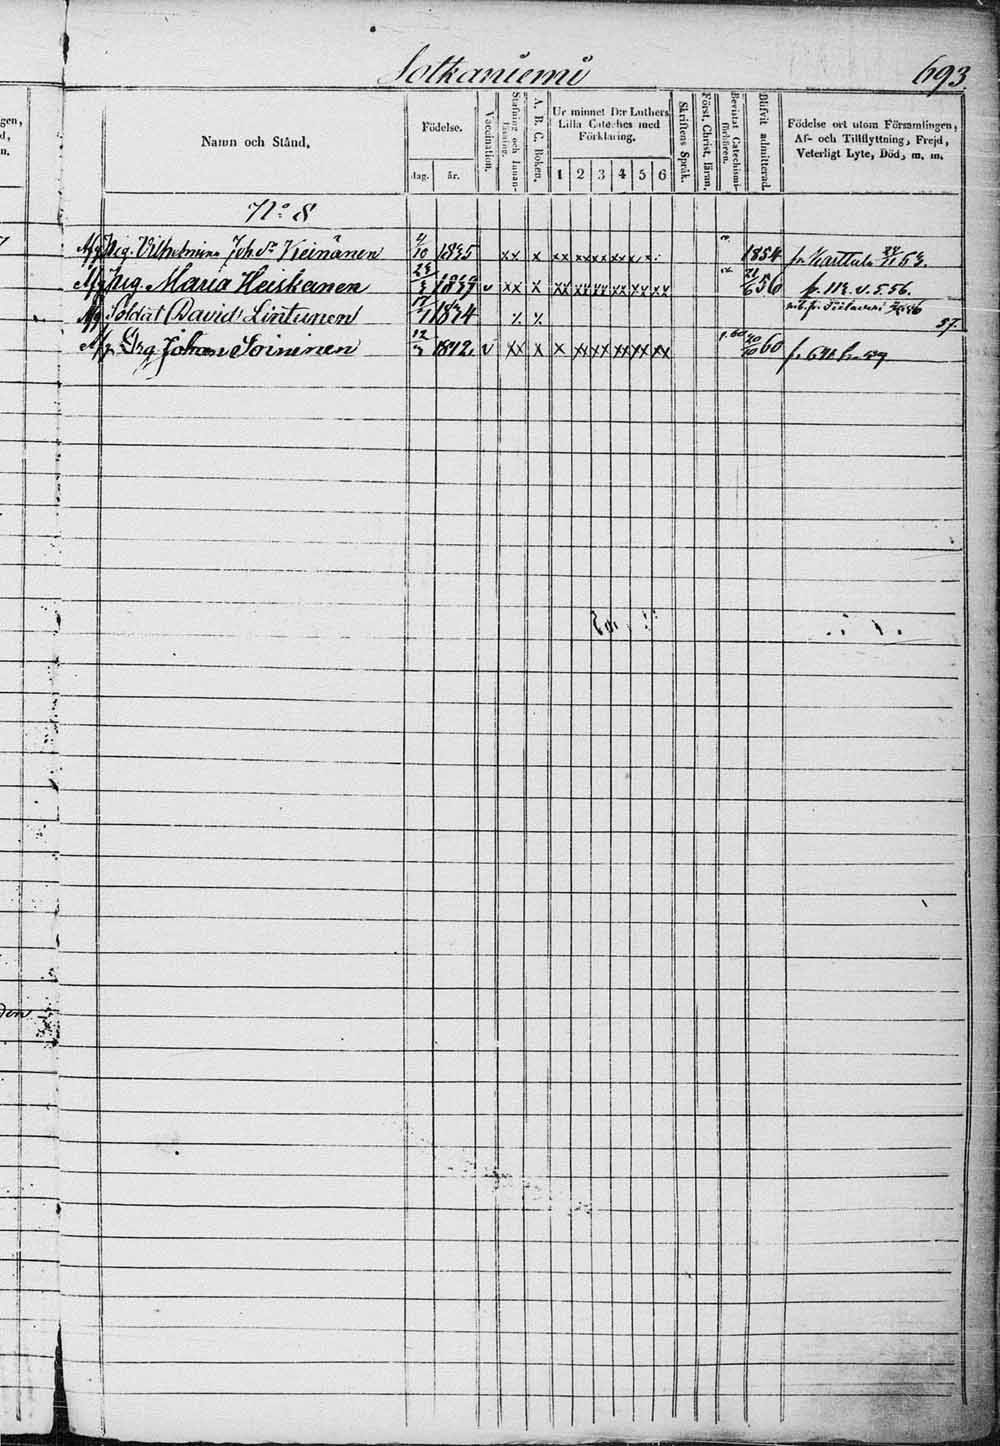 Sotkaniemi 693.
Namn och Stånd.
Födelse.
dag. år.
Vaccination.
Stafning och Innanläsning.
A. B. C. Boken.
Ur minnet D:r Luthers
Lilla Cateches med
Förklaring.
1 2 3 4 5 6
Skriftens Språk.
Först. Christ. läran.
Bevistat Catechismiförhören.
Blifvit admitterad.
Födelse ort utom Församlingen,
Af- och Tillflyttning, Frejd,
Veterligt Lyte, Död, m. m.
gen,
d,
n.
No 8
Pig. Vilhelmina Joh.dr Vieinänen 10 1835 xx x xx xx xx xx 1854 fr. Karttula 53.
Pig. Maria Heiskanen 1839 v xx x xx xx xx xx xx xx 56 p. 112. v. 5. 56.
Soldat David Lintunen 1834 57.
Drg Johan Soininen 12/3 1842. v xx x x xx xx xx xx xx 1.60 20/10 60